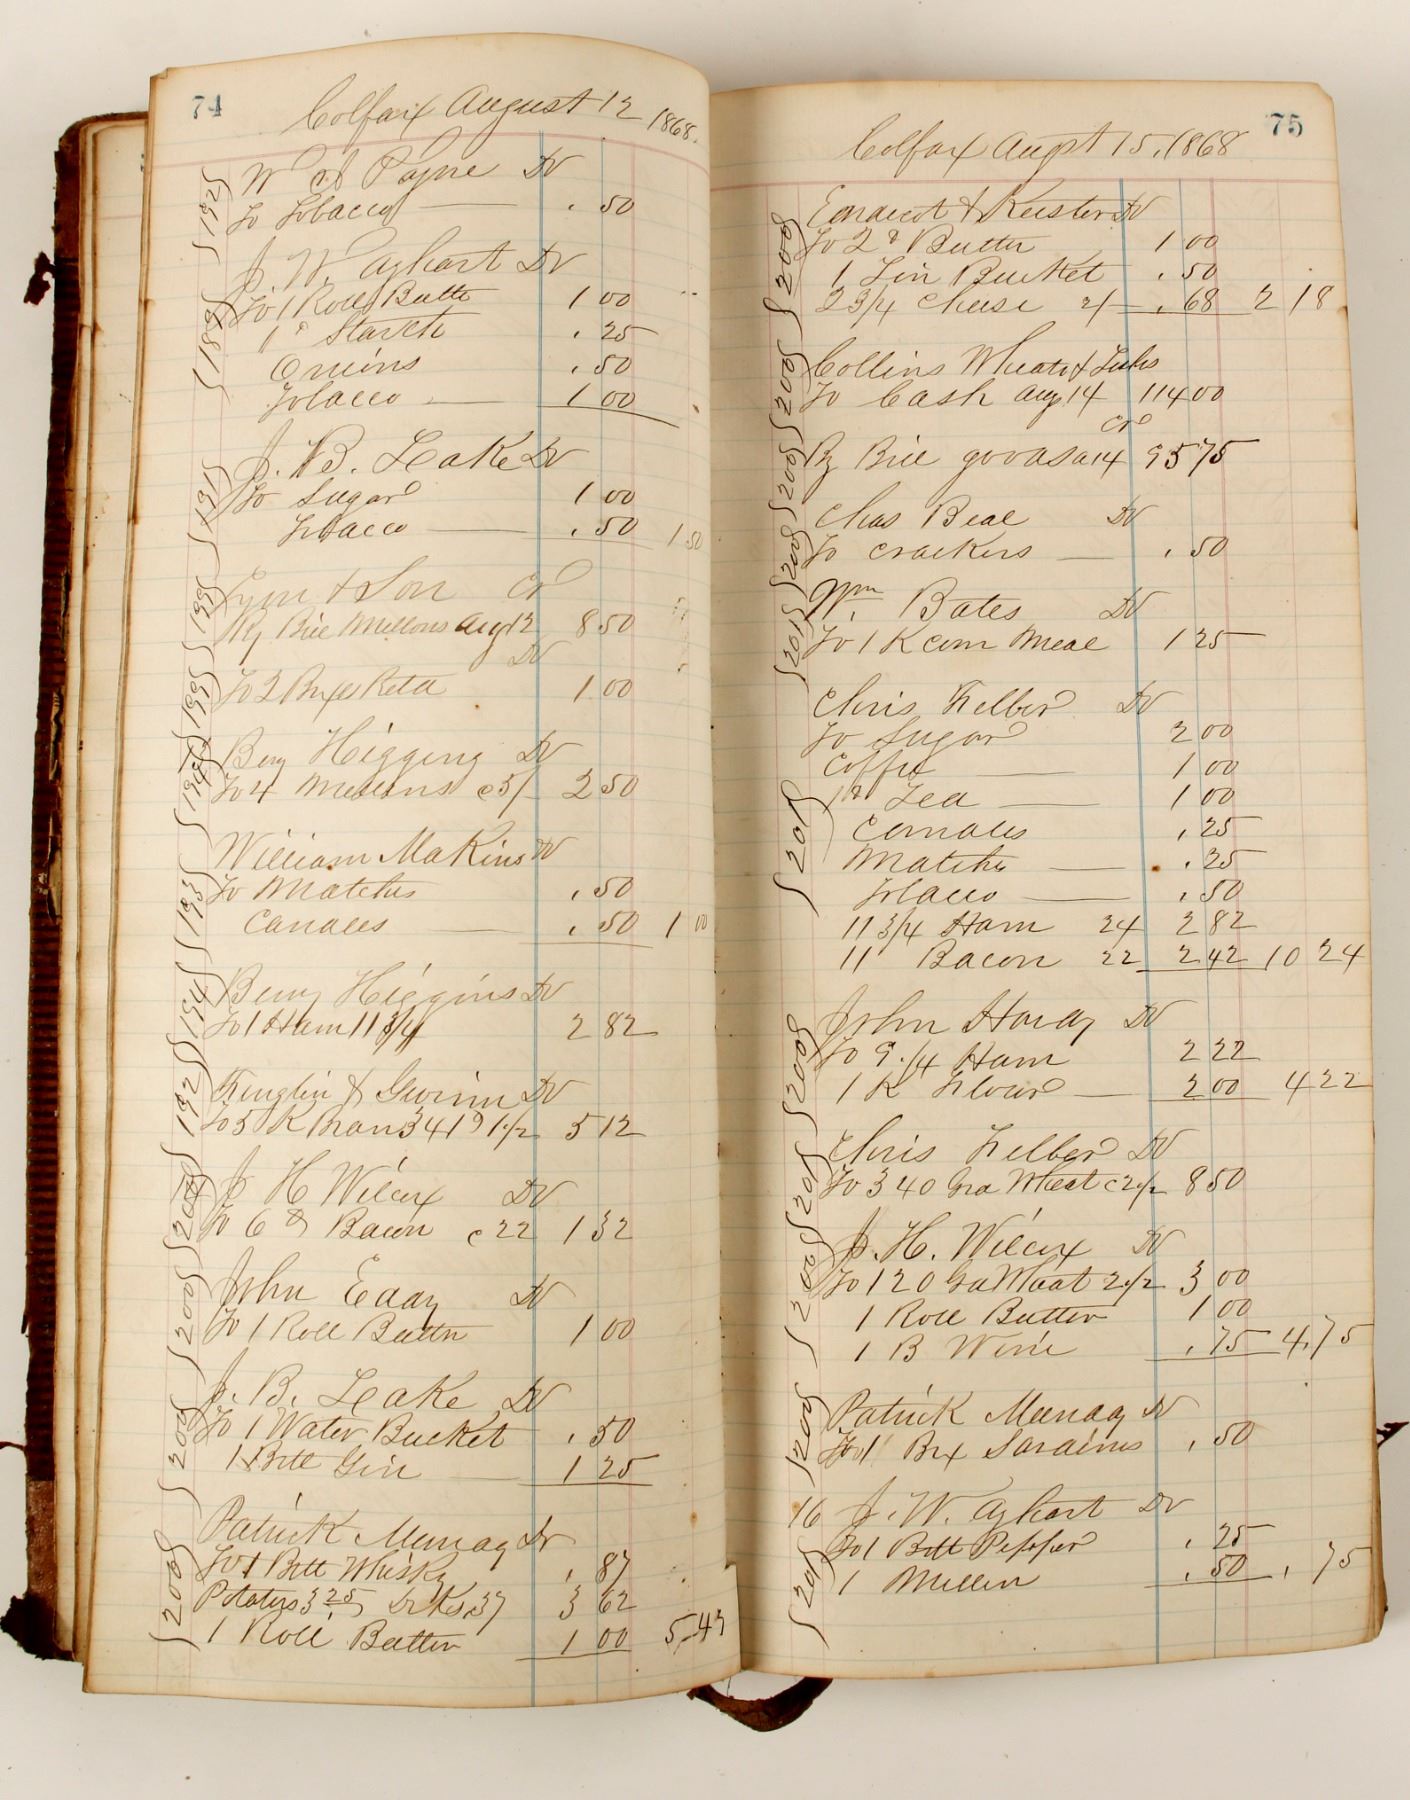 74
Colfax August 12 1868.
192 W A Payne Dr
To Tobacco .50
J. W. Ayhart Dr
189 To 1 Roll Butter 1 00
1 Starch .25
Onions .50
Tobacco 1 00
J. B. Leake Dr
191 To Sugar 1 00
Tobacco .50 1 50
& Son Cr
199 By Bill Mellons Aug 12 8 50
Dr
199 To 2 Bxes 1 00
Benj Higgins Dr
194 To 4 Mellons c 5/ 2 50
William Makins Dr
193 To Matches .50
Candles .50 1 00
Benj Higgins Dr
194 To 1 Ham 11 3/4 2 82
& Gwinn Dr
192 To 5 K Bran 341 @ 1 1/2 5 12
J H Wilcox Dr
201 To 6 Bacon c 22 1 32
John Eddy Dr
200 To 1 Roll Butter 1 00
J. B. Leake Dr
200 To 1 Water Bucket .50
1 Bttl Gin 1 25
Patrick Munday Dr
200 To 1 Bttl Whisky .87
Potatoes 3 25 37 3 62
1 Roll Butter 1 00 5.49
75
Colfax Augst 15, 1868
& Keister Dr
200 To 2 Butter 1 00
1 Tin Bucket .50
2 3/4 Cheese 2/ .68 2 18
Collins Wheats &
200 To Cash Aug 14 114 00
Cr
200 By Bill goods a 14 95 75
Chas Beal Dr
200 To Crackers .50
Wm. Bates Dr
201 To 1 K Corn Meal 1 25
Chris Felber Dr
To Sugar 2 00
Coffee 1 00
201 1 Tea 1 00
Candles .25
Matches .25
Tobacco .50
11 3/4 Ham 24 2 82
11 Bacon 22 2 42 10 24
John Hardy Dr
200 To 9 1/4 Ham 2 22
1 K Flour 2 00 4 22
Chris Felber Dr
201 To 340 Gra Wheat c 2 1/2 8 50
J. H. Wilcox Dr
200 To 120 Ga Wheat 2 1/2 3 00
1 Roll Butter 1 00
1 B Wine .75 4.75
Patrick Munday Dr
200 To 1 Bx Sardines .50
16 J. W. Ayhart Dr
201 To 1 Bttl Pepper .25
1 Mellon .50 .75